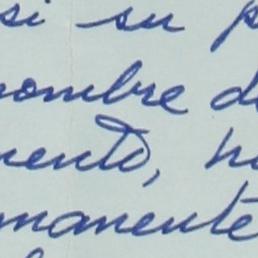 si su p
nombre d
mento, n
manente